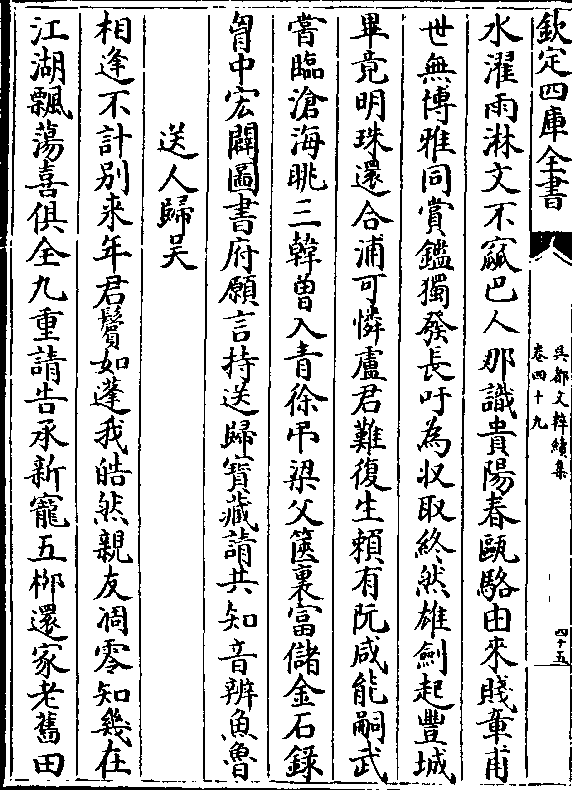 欽定四庫全書
吳都文粹續集
卷四十九
四十五
水濯雨淋文不窳巴人那識貴陽春甌駱由來賤章甫
世無博雅同賞鑑獨發長吁為収取終然雄劍起豐城
畢竟明珠還合浦可憐盧君難復生頼有阮咸能嗣武
嘗臨滄海眺三韓曽入青徐弔梁父篋裏富儲金石録
胷中宏闢圖書府願言持送歸寳藏請共知音辨魚魯
送人歸吴
相逢不計别来年君鬢如蓬我皓然親友凋零知幾在
江湖飄蕩喜俱全九重請告承新寵五栁還家老舊田